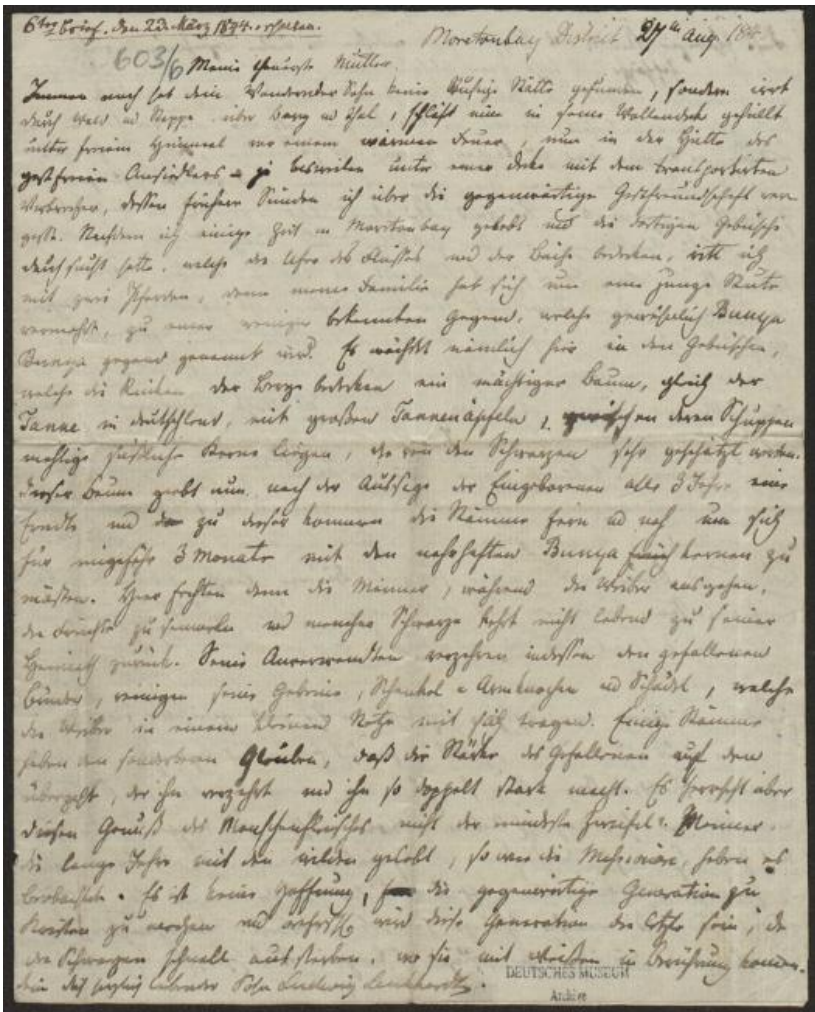 6ter Brief. den 22. März 1844. erhalten.
Moretonbay District 27th Aug. 184
603/6 Meine theuerste Mutter.
Immer noch hat dein wandernder Sohn keine ruhige Stätte gefunden, sondern irrt
durch Wald und Steppe über Berg und Thal, schläft nun in seine Wollendecke gehüllt
unter freiem Himmel vor einem warmen Feuer, nun in der Hütte des
gastfreien Ansiedlers - ja bisweilen unter einer Decke mit dem transportirten
Verbrecher, dessen frühere Sünden ich über die gegenwärtige Gastfreundschaft ver
gesse. Nachdem ich einige Zeit in Moretonbay gelebt und die dortigen Gebüsche
durchsucht hatte, welche die Ufer des Flusses und der Bäche bedecken, ritt ich
mit zwei Pferden, denn meine Familie hat sich um eine junge Stute
vermehrt, zu einer weniger bekannten Gegend, welche gewöhnlich Bunya
Bunya gegend genannt wird. Es wächst nämlich hier in den Gebüschen,
welche die Rücken der Berge bedecken ein mächtiger Baum, gleich der
Tanne in Deutschland, mit großen Tannenäpfeln, zwischen deren Schuppen
mehlige süßliche Kerne liegen, die von den Schwarzen sehr geschätzt werden.
Dieser Baum giebt nun nach der Aussage der Eingeborenen alle 3 Jahre eine
Erndte und zu dieser kommen die Stämme fern und nah um sich
für ungefähr 3 Monate mit den nahrhaften Bunya kernen zu
mästen. Hier fechten denn die Männer, während die Weiber ausgehen,
die Früchte zu sammeln und mancher Schwarze kehrt nicht lebend zu seiner
Heimath zurück. Seine Anverwandten verzehren indessen den gefallenen
Bruder, reinigen seine Gebeine, Schenkel u Armknochen und Schädel, welche
die Weiber in einem kleinen Netze mit sich tragen. Einige Stämme
haben den sonderbaren Glauben, daß die Stärke des Gefallenen auf den
übergeht, der ihn verzehrt und ihn so doppelt stark macht. Es herrscht über
diesen Genuß des Menschenfleisches nicht der mindeste Zweifel. Männer
die lange Jahre mit den wilden gelebt, so wie die Missionäre, haben es
beobachtet. Es ist keine Hoffnung, die gegenwärtige Generation zu
Christen zu machen und wird diese Generation die letzte sein, da
die Schwarzen schnell aussterben, wo sie mit Weißen in Berührung kommen.
dein dich herzlich liebender Sohn Ludwig Leichhardt.
DEUTSCHES MUSEUM
Archive